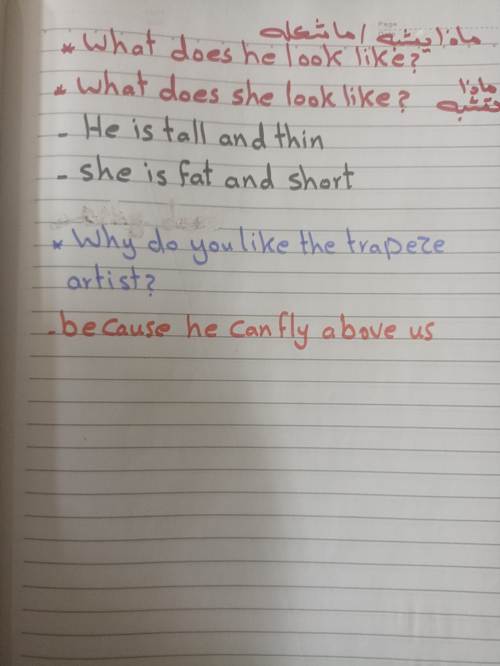 ماذا يشبه / ما شكله
* What does he look like?
* What does she look like? ماذا
تشبه
- He is tall and thin
- she is fat and short
* Why do you like the trapeze
artist?
- because he can fly above us